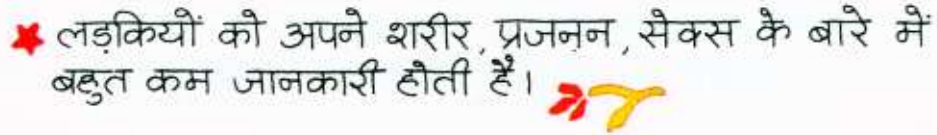 लड़कियों को अपने शरीर, प्रजनन, सेक्स के बारे में
बहुत कम जानकारी होती है।